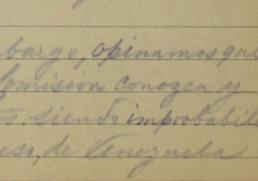 bargo, opinamos que
Comisión conozca y
s. siendo improbabil
es, de Venezuela